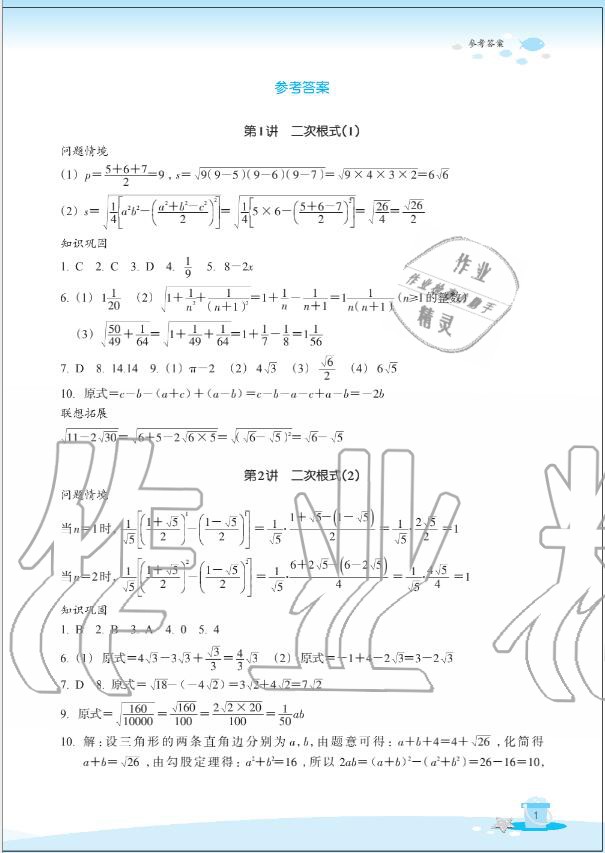 参考答案
参考答案
第1讲 二次根式(1)
问题情境
(1) p=\frac{5+6+7}{2}=9,s=\sqrt{9(9-5)(9-6)(9-7)}=\sqrt{9×4×3×2}=6\sqrt{6}
(2) s=\sqrt{\frac{1}{4}[a²b²-(\frac{a²+b²-c²}{2})²]}=\sqrt{\frac{1}{4}[5×6-(\frac{5+6-7}{2})²]}=\sqrt{\frac{26}{4}}=\frac{\sqrt{26}}{2}
知识巩固
1. C 2. C 3. D 4. \frac{1}{9} 5. 8-2x
6. (1) 1\frac{1}{20} (2) \sqrt{1+\frac{1}{n²}+\frac{1}{(n+1)²}}=1+\frac{1}{n}-\frac{1}{n+1}=1\frac{1}{n(n+1)}(n≥1的整数)
(3) \sqrt{\frac{50}{49}+\frac{1}{64}}=\sqrt{1+\frac{1}{49}+\frac{1}{64}}=1+\frac{1}{7}-\frac{1}{8}=1\frac{1}{56}
7. D 8. 14.14 9. (1) π-2 (2) 4\sqrt{3} (3) \frac{\sqrt{6}}{2} (4) 6\sqrt{5}
10. 原式=c-b-(a+c)+(a-b)=c-b-a-c+a-b=-2b
联想拓展
\sqrt{11-2\sqrt{30}}=\sqrt{6+5-2\sqrt{6×5}}=\sqrt{(\sqrt{6}-\sqrt{5})²}=\sqrt{6}-\sqrt{5}
第2讲 二次根式(2)
问题情境
当n=1时,\frac{1}{\sqrt{5}}[(\frac{1+\sqrt{5}}{2})¹-(\frac{1-\sqrt{5}}{2})¹]=\frac{1}{\sqrt{5}}·\frac{1+\sqrt{5}-(1-\sqrt{5})}{2}=\frac{1}{\sqrt{5}}·\frac{2\sqrt{5}}{2}=1
当n=2时,\frac{1}{\sqrt{5}}[(\frac{1+\sqrt{5}}{2})²-(\frac{1-\sqrt{5}}{2})²]=\frac{1}{\sqrt{5}}·\frac{6+2\sqrt{5}-(6-2\sqrt{5})}{4}=\frac{1}{\sqrt{5}}·\frac{4\sqrt{5}}{4}=1
知识巩固
1. B 2. B 3. A 4. 0 5. 4
6. (1) 原式=4\sqrt{3}-3\sqrt{3}+\frac{\sqrt{3}}{3}=\frac{4}{3}\sqrt{3} (2) 原式=-1+4-2\sqrt{3}=3-2\sqrt{3}
7. D 8. 原式=\sqrt{18}-(-4\sqrt{2})=3\sqrt{2}+4\sqrt{2}=7\sqrt{2}
9. 原式=\sqrt{\frac{160}{10000}}=\frac{\sqrt{160}}{100}=\frac{2\sqrt{2×20}}{100}=\frac{1}{50}ab
10. 解:设三角形的两条直角边分别为a,b,由题意可得:a+b+4=4+\sqrt{26},化简得
a+b=\sqrt{26},由勾股定理得:a²+b²=16,所以2ab=(a+b)²-(a²+b²)=26-16=10,
1
作业
精灵
作业